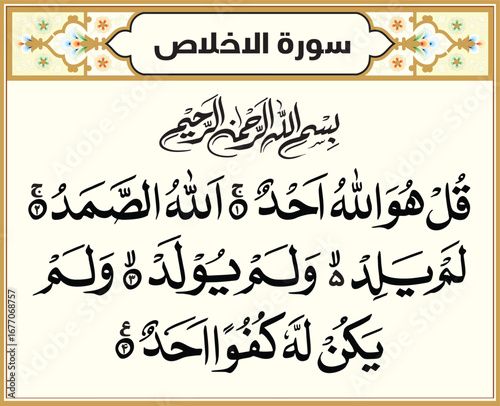 سورة الاخلاص
بِسْمِ اللهِ الرَّحْمٰنِ الرَّحِيْمِ
قُلْ هُوَ اللهُ اَحَدٌ ۚ ﴿۱﴾ اَللهُ الصَّمَدُ ۚ ﴿۲﴾
لَمْ يَلِدْ ۙ وَلَمْ يُوْلَدْ ۙ ﴿۳﴾ وَلَمْ
يَكُنْ لَّهٗ كُفُوًا اَحَدٌ ﴿۴﴾ ع
Adobe Stock | #1677068757